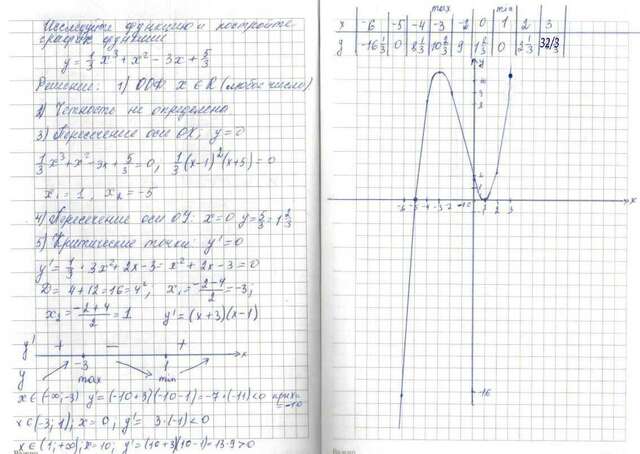 Исследуйте функцию и постройте
график функции
y = 1/3 x³ + x² - 3x + 5/3
Решение: 1) ООФ x ∈ R (любое число)
2) Четность не определена
3) Пересечение оси OX; y = 0
1/3 x³ + x² - 3x + 5/3 = 0, 1/3 (x-1)² (x+5) = 0
x₁ = 1, x₂ = -5
4) Пересечение оси OY: x = 0 y = 5/3 = 1 2/3
5) Критические точки: y' = 0
y' = 1/3 · 3x² + 2x - 3 = x² + 2x - 3 = 0
D = 4 + 12 = 16 = 4², x₁ = (-2-4)/2 = -3;
x₂ = (-2+4)/2 = 1 y' = (x+3)(x-1)
y' + — + x
-3 1
y max min
x ∈ (-∞, -3) y = (-10+3)(-10-1) = -7·(-11) < 0 при x = -10
x ∈ (-3; 1); x = 0, y' = 3·(-1) < 0
x ∈ (1, +∞), x = 10; y' = (10+3)(10-1) = 13·9 > 0
max min
x -6 -5 -4 -3 -2 0 1 2 3
y -16 1/3 0 8 1/3 10 2/3 9 1 2/3 0 2 1/3 32/3
y
x
-6 -5 -4 -3 -2 -1 0 1 2 3
-16